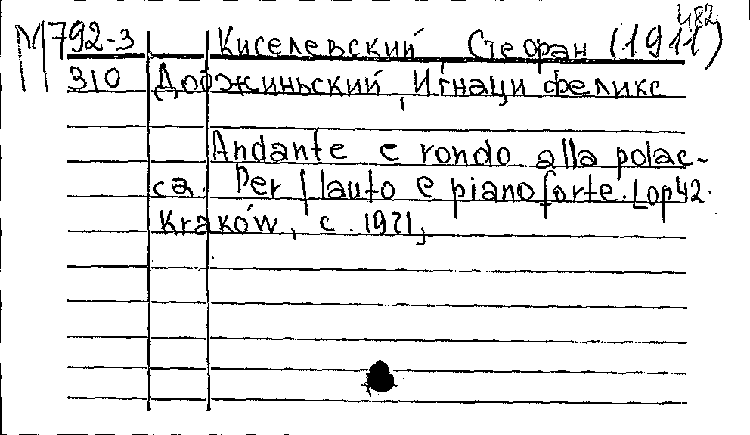 482
М 792-3 Киселевский, Стефан (1911)
310 Добжиньский, Игнаци Феликс
Andante e rondo alla polac-
ca. Per flauto e pianoforte. [op 42.
Kraków, c. 1971,